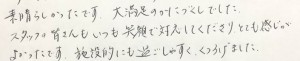 素晴らしかったです。大満足のかにづくしでした。
スタッフの皆さんもいつも笑顔で対応してくださりとても感じが
よかったです。施設的にも過ごしやすく、くつろげました。